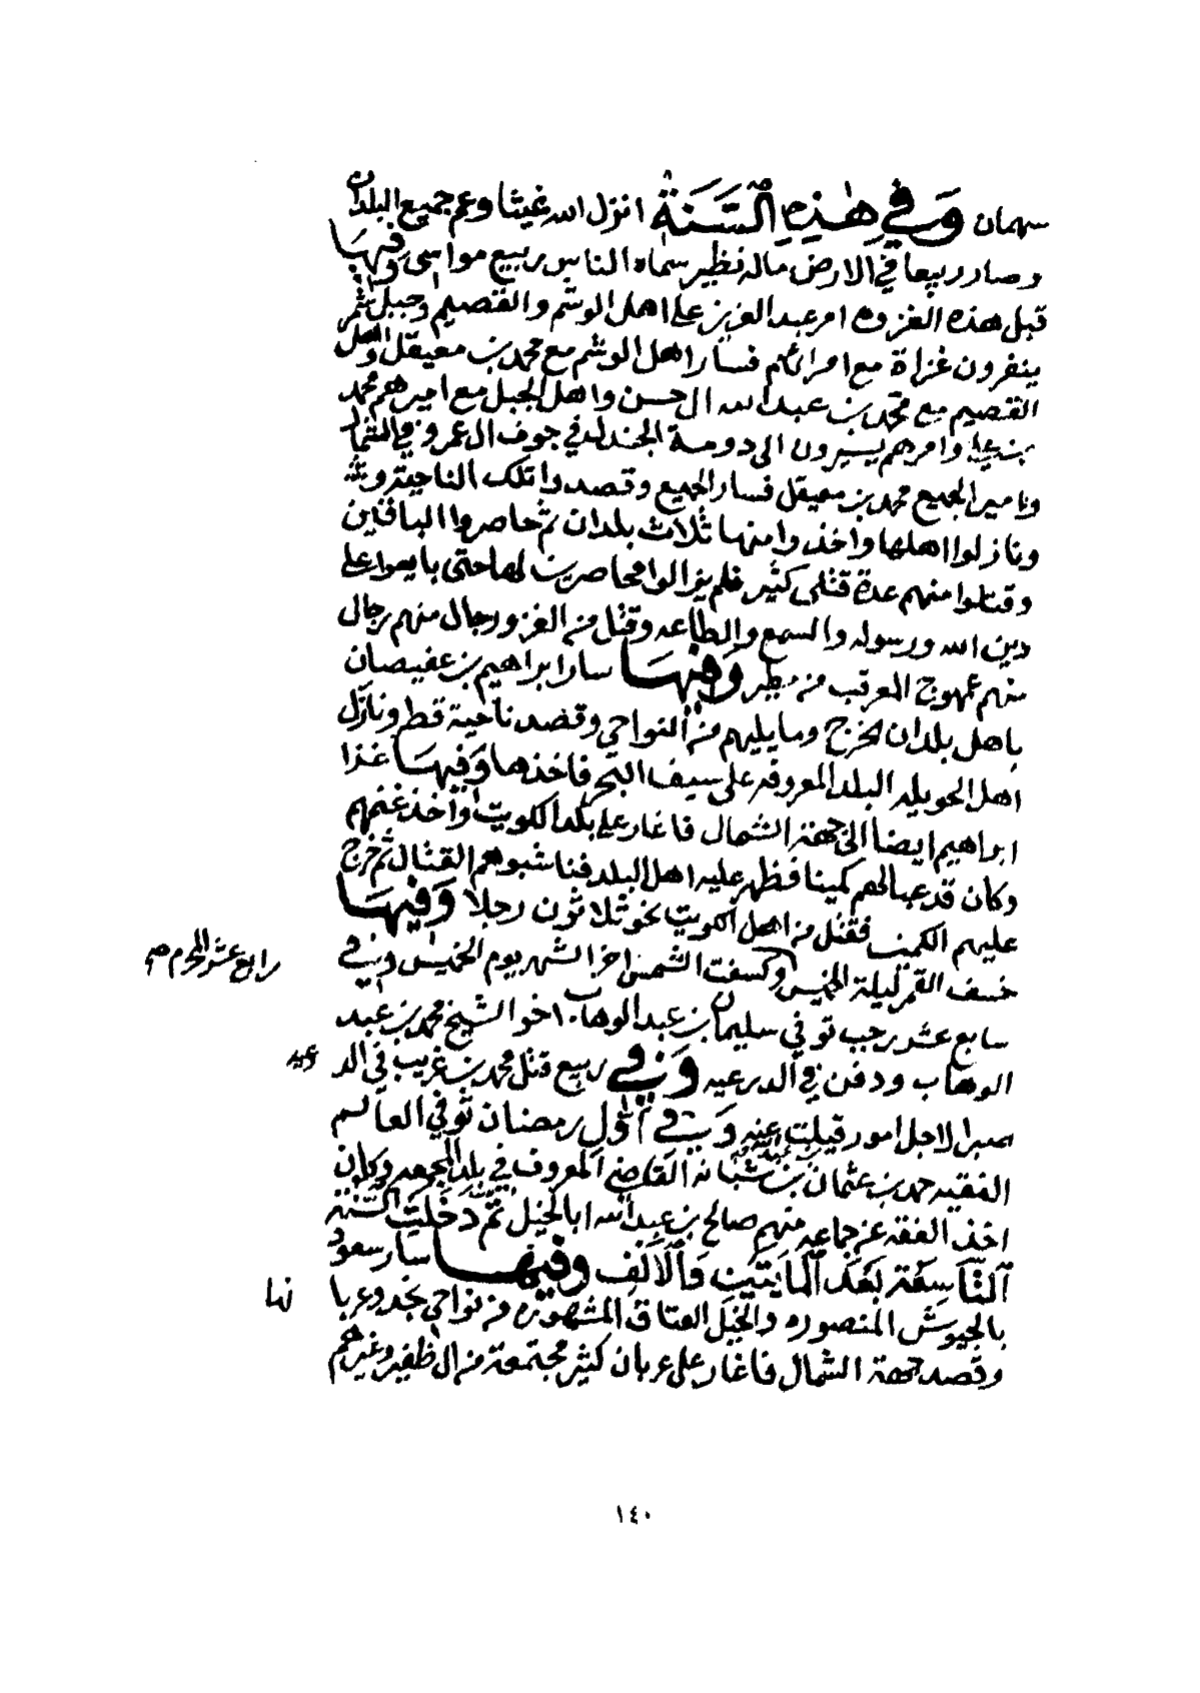 سهمان وَفِي هٰذِهِ السَّنَةِ انزل الله غيثا وعم جميع البلدان
وصار ربيعا في الارض ماله نظير سماه الناس ربيع مواسى وفيها
قبل هذه الغزوه امر عبدالعزيز على اهل الوشم والقصيم وجبل شمر
ينفرون غزاة مع امرائهم فسار اهل الوشم مع محمد بن معيقل واهل
القصيم مع محمد بن عبدالله ال حسن واهل الجبل مع اميرهم محمد
بن علي وامرهم يسيرون الى دومة الجندل في جوف ال عمرو في الشمال
وامير الجميع محمد بن معيقل فسار الجميع وقصدوا تلك الناحية
ونازلوا اهلها واخذوا منها ثلاث بلدان ثم حاصروا الباقين
وقتلوا منهم عدة قتلى كثير فلم يزالوا محاصرين لها حتى بايعوا على
دين الله ورسوله والسمع والطاعه وقتل من الغزو رجال منهم رجال
منهم عمهوج المرقب من مطير وَفِيهَا سار ابراهيم بن عفيصان
باهل بلدان الخرج وما يليهم من النواحي وقصد ناحية قطر ونازل
اهل الحويله البلد المعروفه على سيف البحر فاخذها وَفِيهَا غزا
ابراهيم ايضا الى جهة الشمال فاغار على بلد الكويت واخذ غنمهم
وكان قد عبا لهم كمينا فظهر عليه اهل البلد فناشبوهم القتال ثم خرج
عليهم الكمين فقتل من اهل الكويت نحو ثلاثون رجلا وَفِيهَا
خسف القمر ليلة الخميس وكسفت الشمس اخر الشهر يوم الخميس وَفِي
رابع عشر المحرم صح
سابع عشر رجب توفي سليمان بن عبدالوهاب اخو الشيخ محمد بن عبد
الوهاب ودفن في الدرعيه وَفِي ربيع قتل محمد بن غريب في الد
رعيه
صبرا لاجل امور قيلت عنه وَفِي اول رمضان توفي العالم
الفقيه حمد بن عثمان بن شبانه القاضي المعروف في بلد المجمعه وكان
اخذ الفقه عن جماعه منهم صالح بن عبدالله ابا الخيل ثُمَّ دَخَلَتِ السَّنَةُ
التَّاسِعَة بَعْدَ المايَتَيْنِ وَالاَلْفِ وفيها سار سعود
بالجيوش المنصوره والخيل العتاق المشهوره من نواحي نجد وعربا
نها
وقصد جهة الشمال فاغار على عربان كثير مجتمعة من ال ظفير وغيرهم
١٤٠